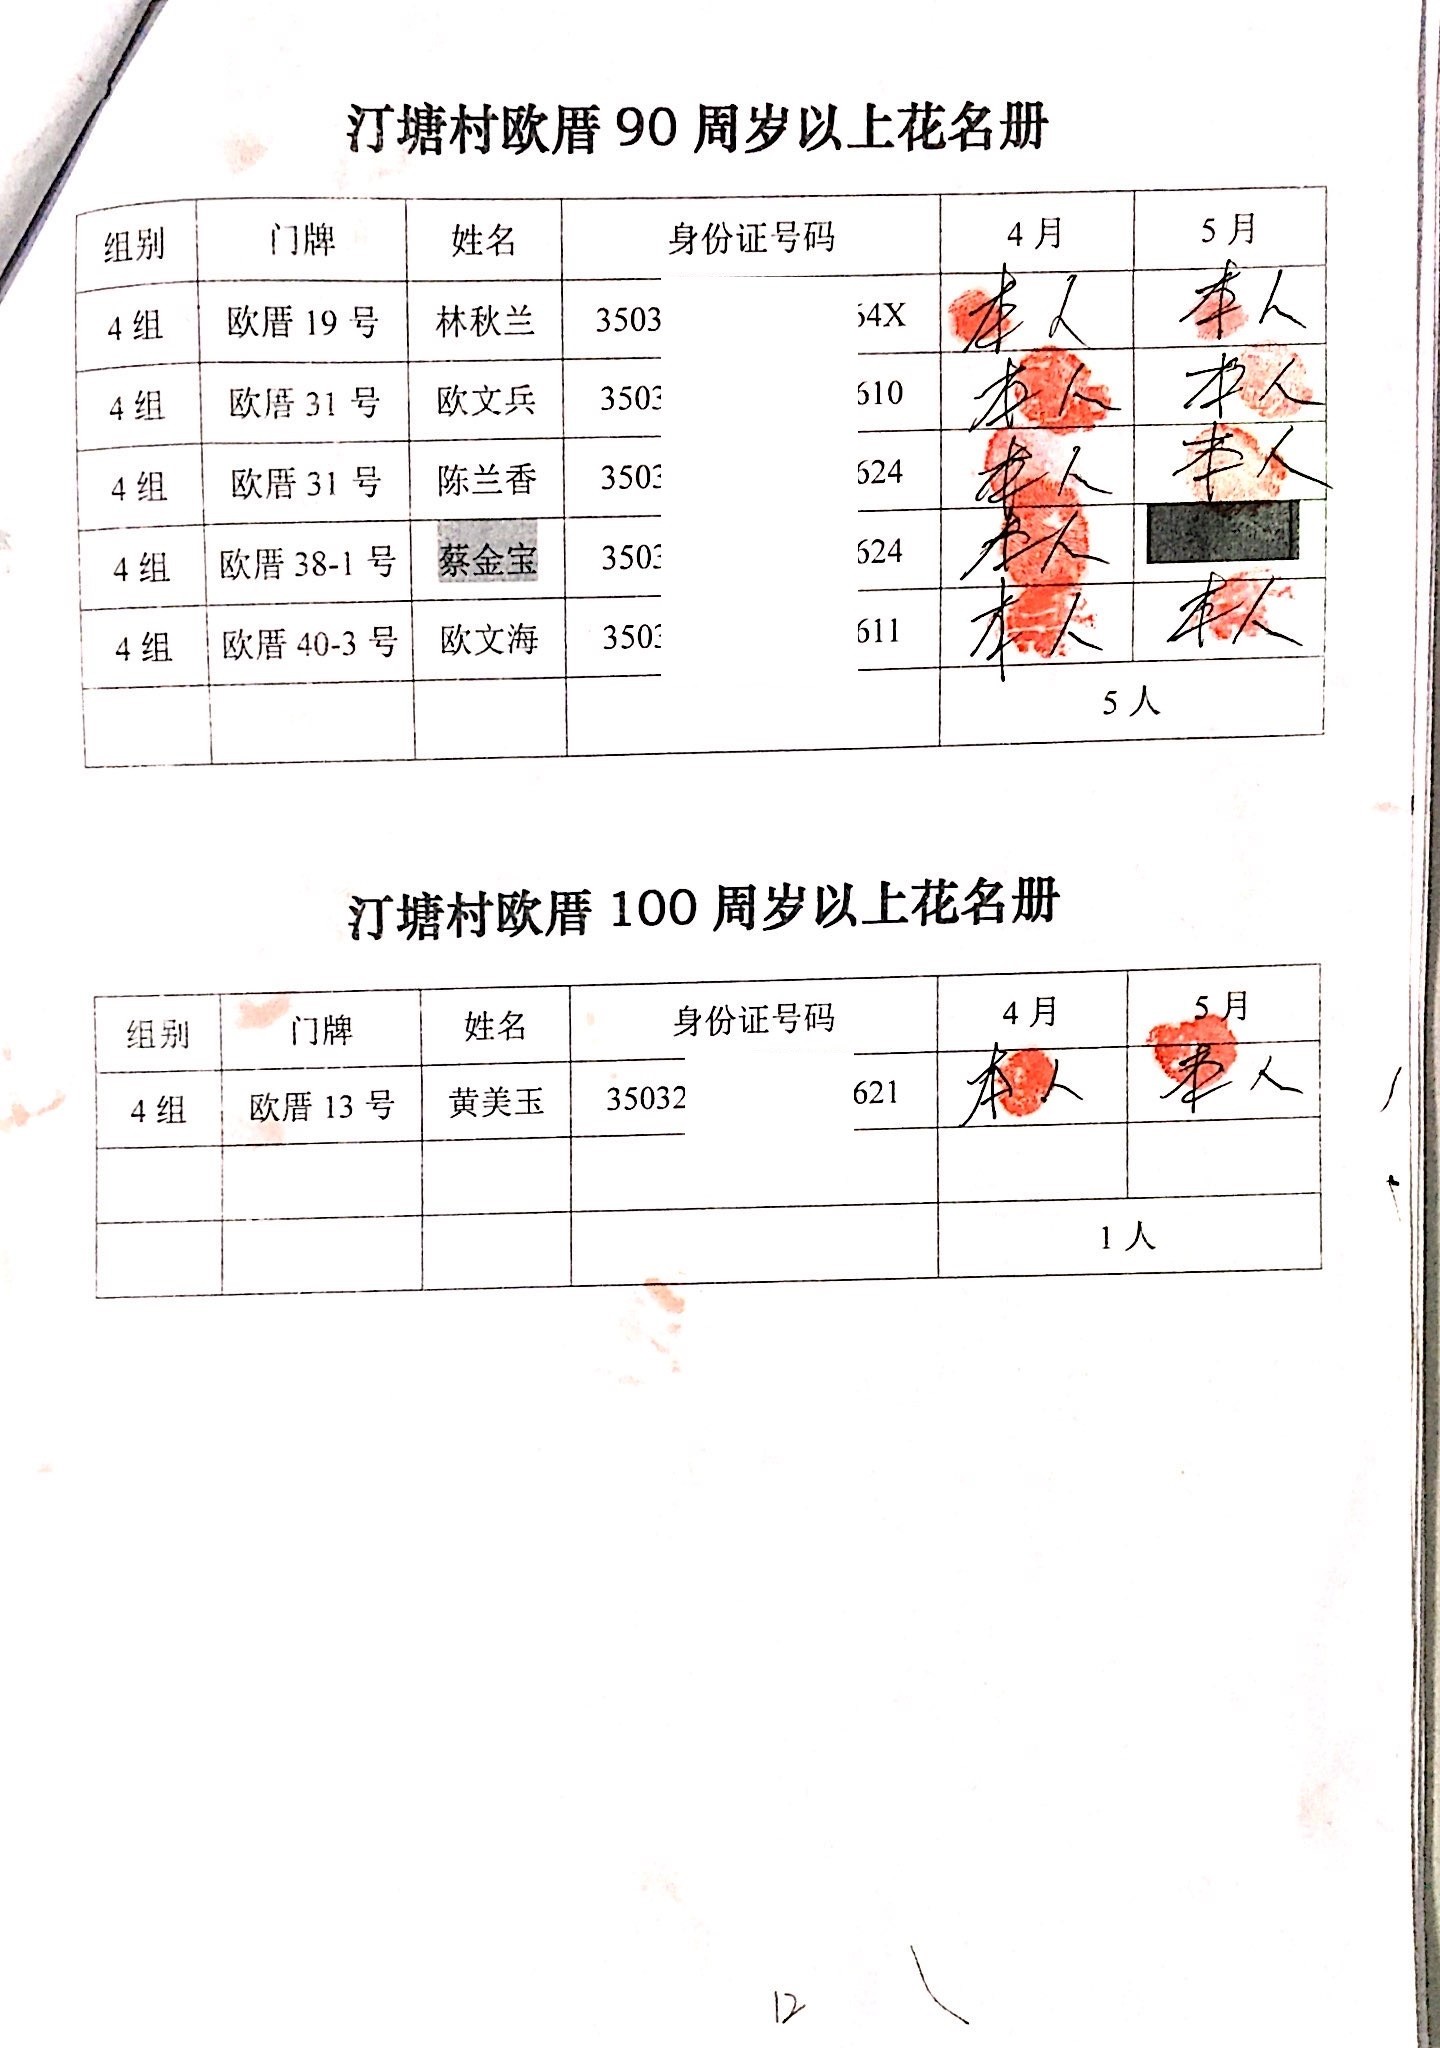 汀塘村欧厝 90 周岁以上花名册
组别 门牌 姓名 身份证号码 4 月 5 月
4 组 欧厝 19 号 林秋兰 3503 64X 本人 本人
4 组 欧厝 31 号 欧文兵 3503 610 本人 本人
4 组 欧厝 31 号 陈兰香 3503 624 本人 本人
4 组 欧厝 38-1 号 蔡金宝 3503 624 本人
4 组 欧厝 40-3 号 欧文海 3503 611 本人 本人
5 人
汀塘村欧厝 100 周岁以上花名册
组别 门牌 姓名 身份证号码 4 月 5 月
4 组 欧厝 13 号 黄美玉 35032 621 本人 本人
1 人
12